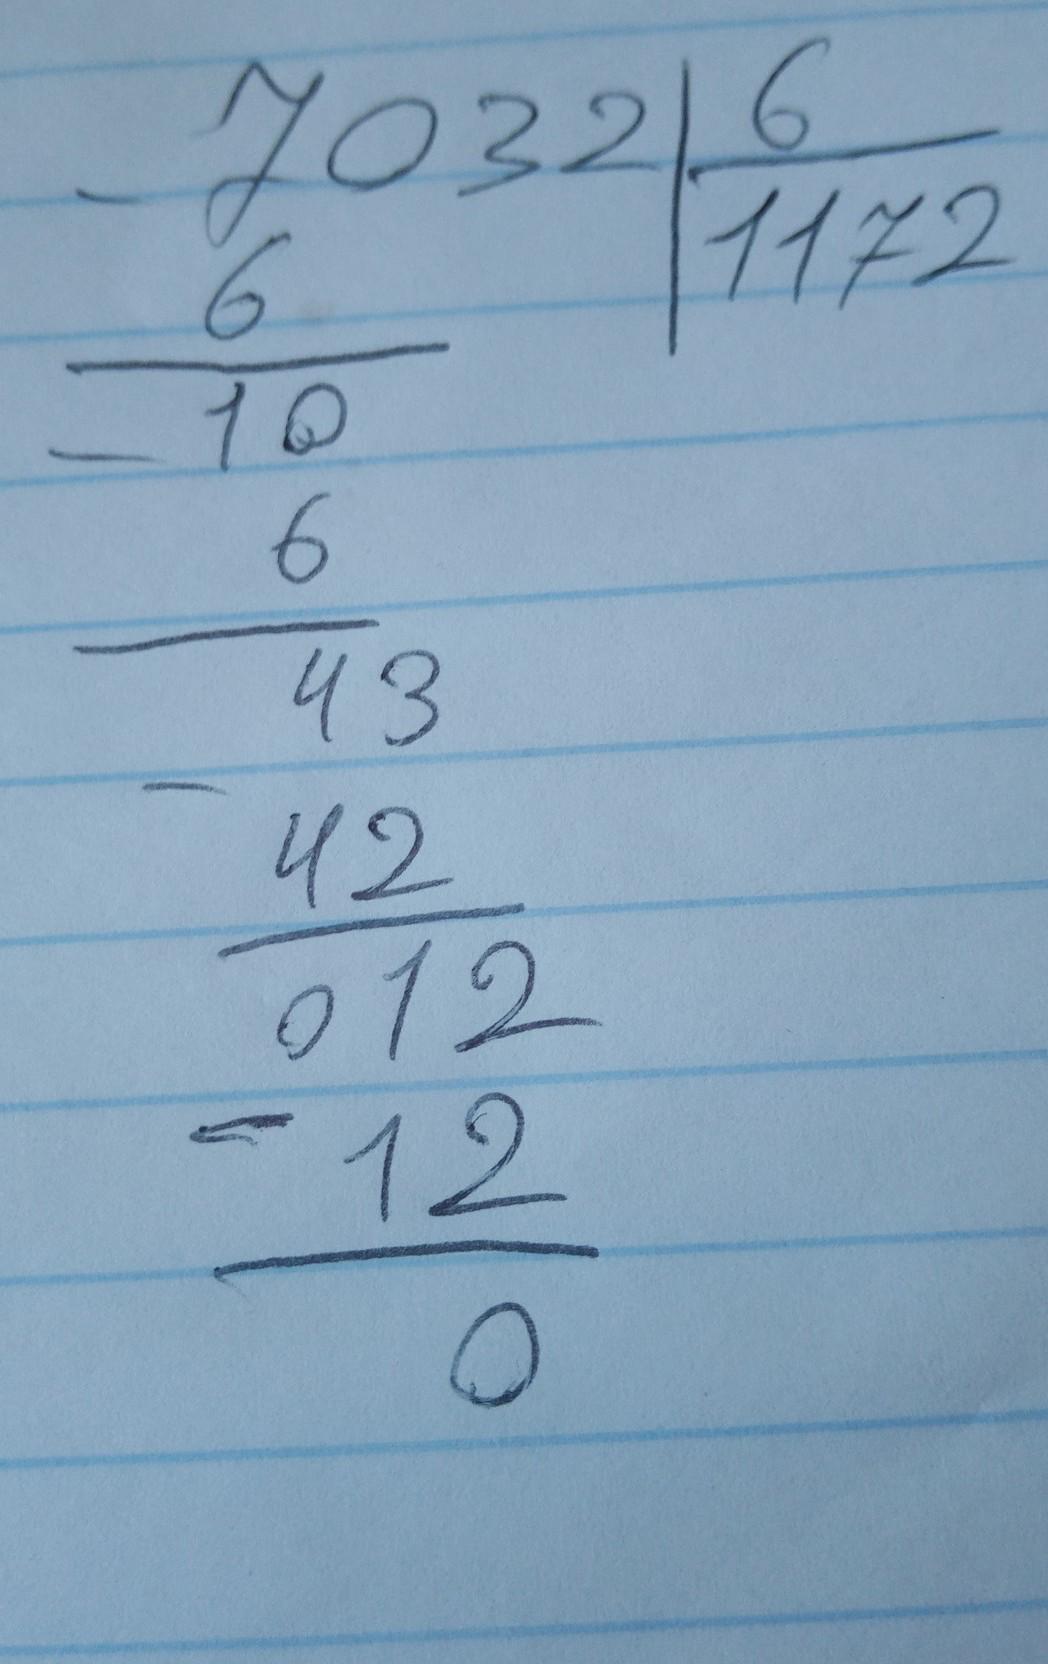 - 7032 | 6
6 | 1172
- 10
6
43
-
42
012
- 12
0